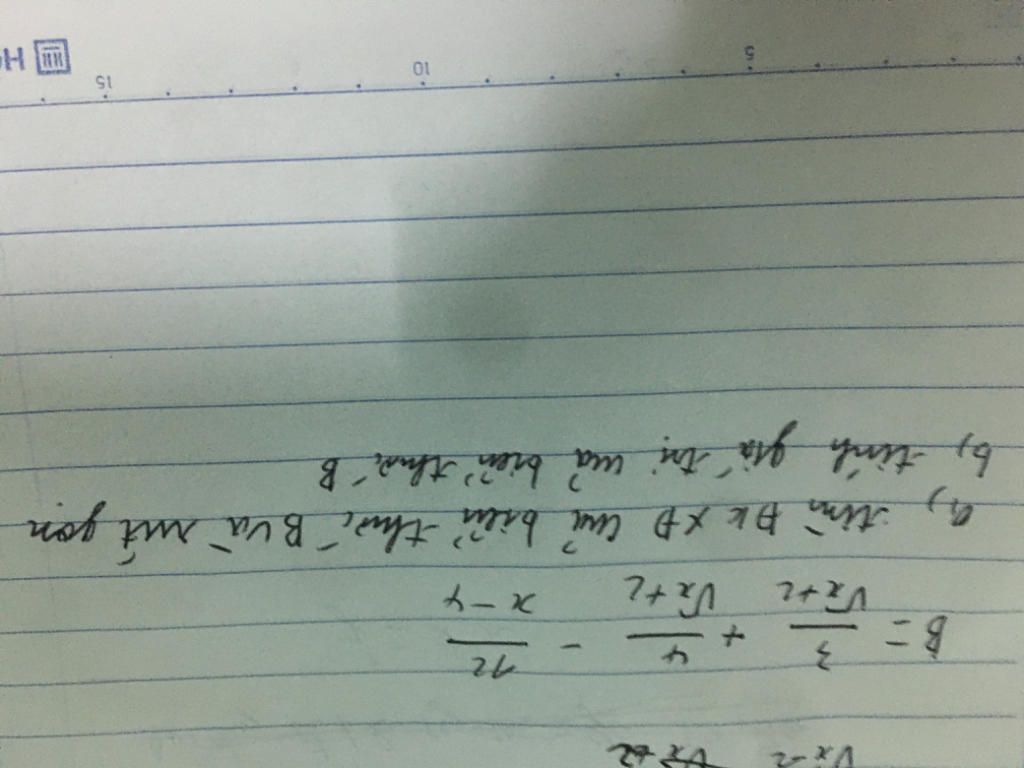 √x-2 √x+2
B = 3/(√x+2) + 4/(√x+2) - 12/(x-4)
a, tìm ĐKXĐ của biểu thức B và rút gọn
b, tính giá trị của biểu thức B
5 10 15